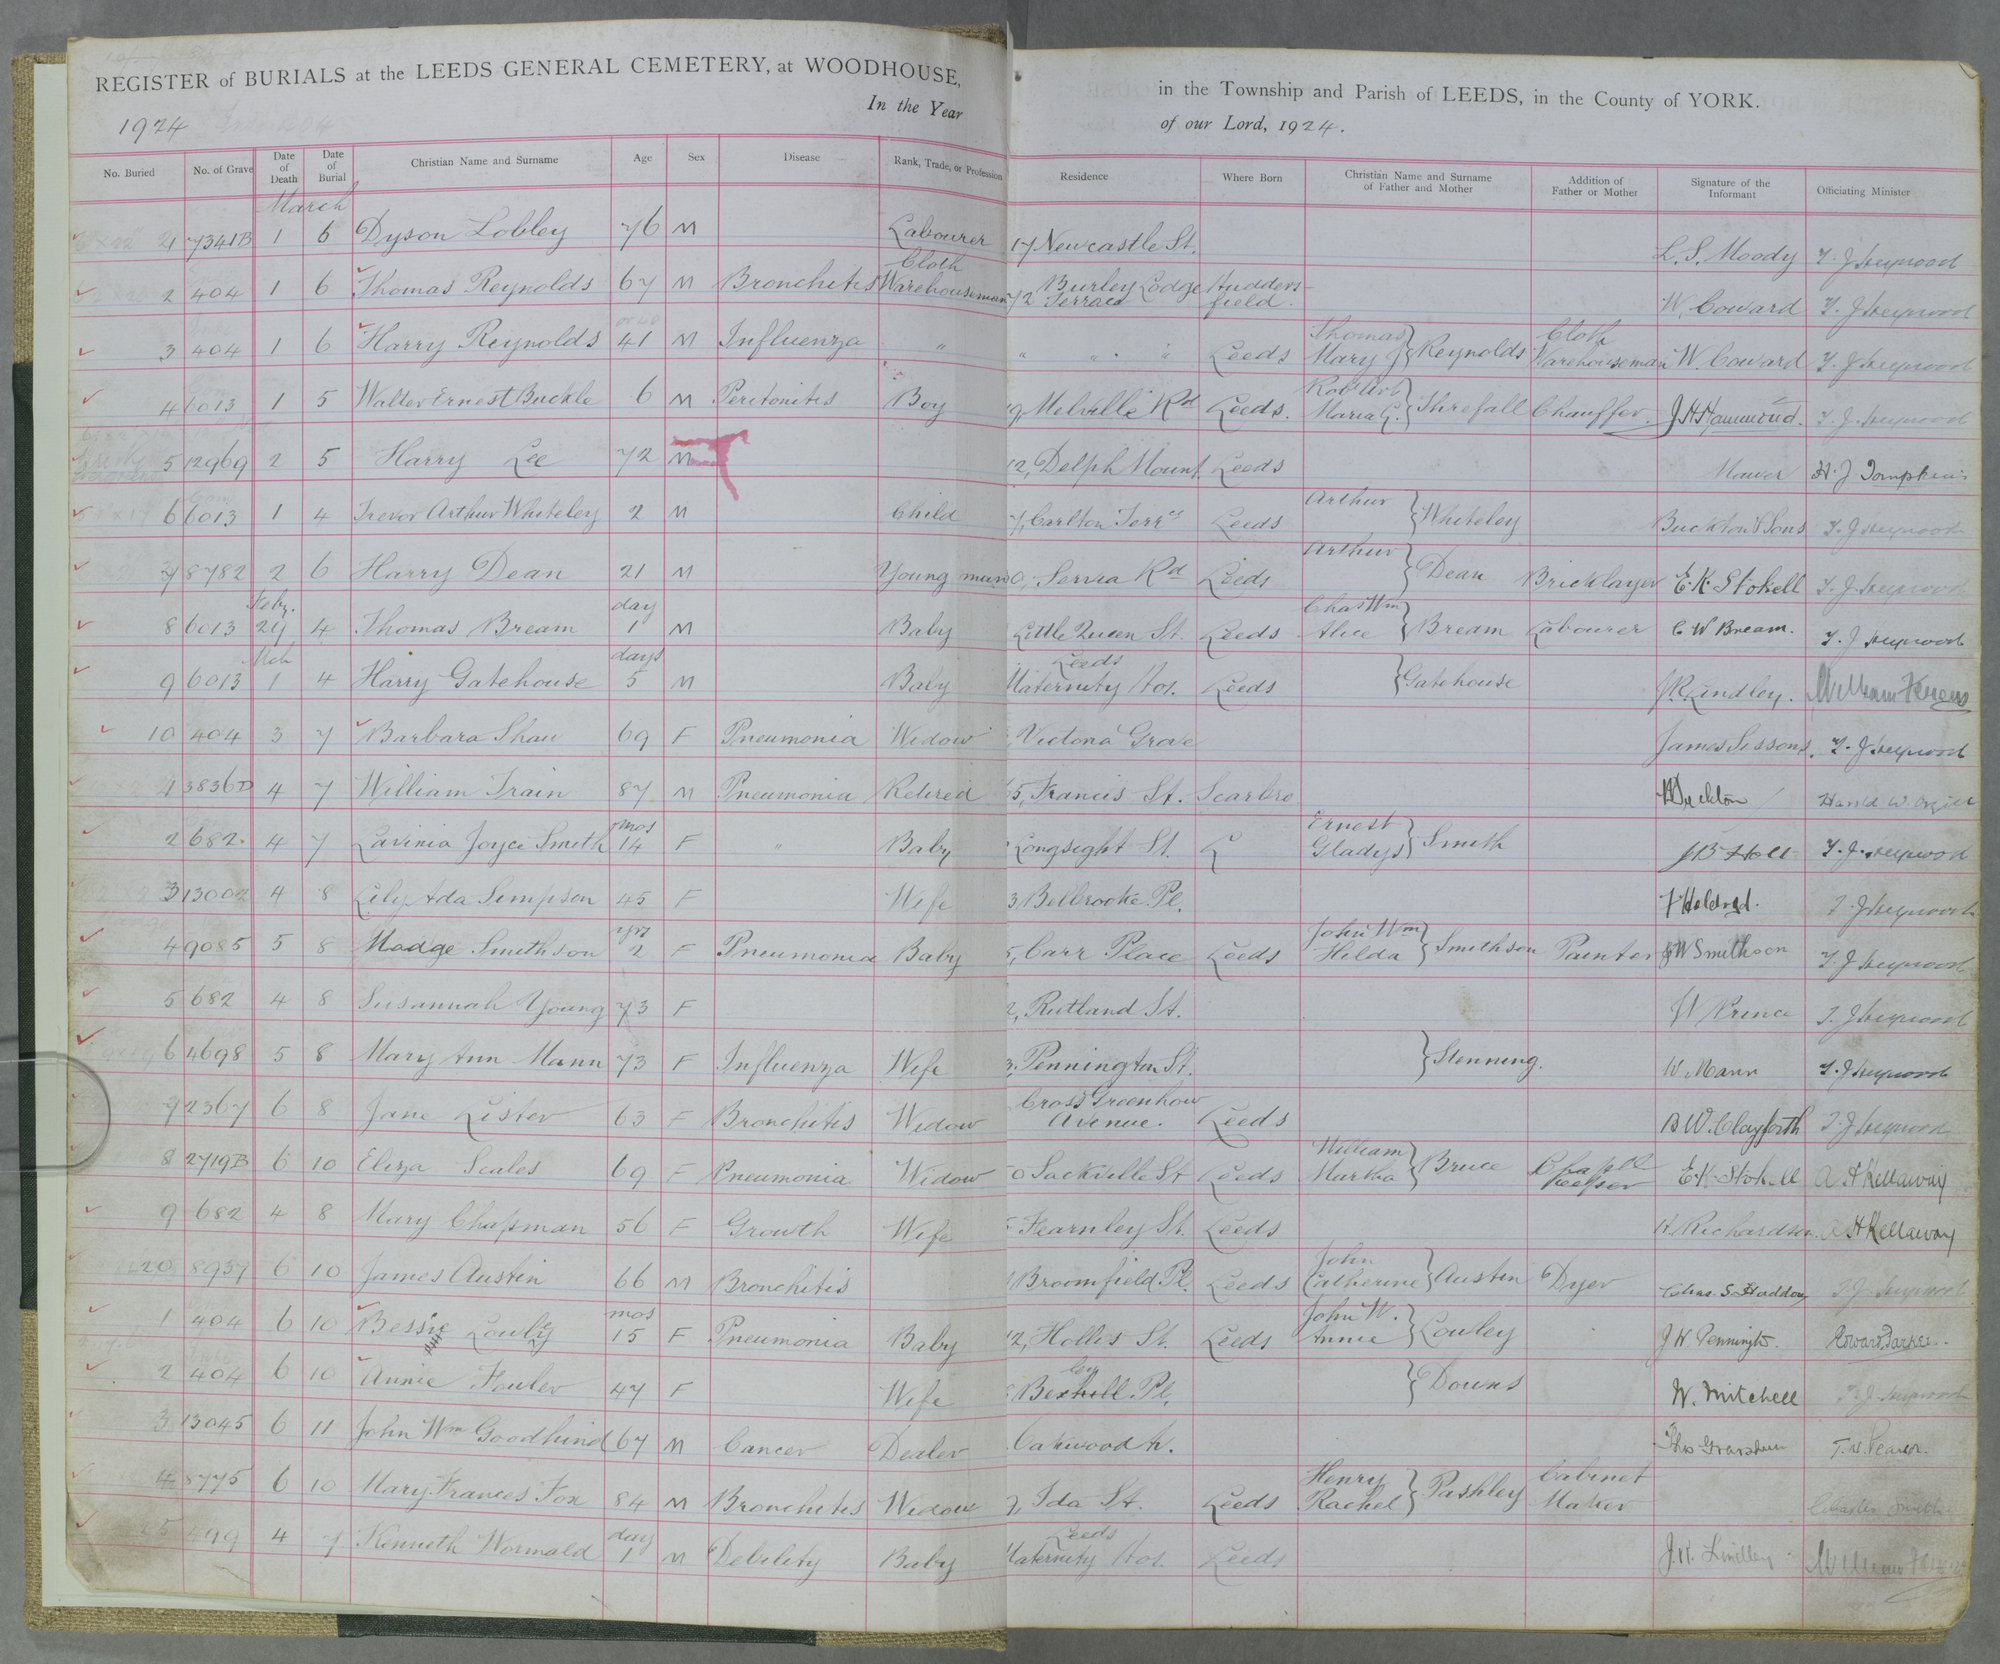 REGISTER of BURIALS at the LEEDS GENERAL CEMETERY, at WOODHOUSE, in the Township and Parish of LEEDS, in the County of YORK.
In the Year of our Lord, 1924.
1924
No. Buried No. of Grave Date of Death Date of Burial Christian Name and Surname Age Sex Disease Rank, Trade, or Profession Residence Where Born Christian Name and Surname of Father and Mother Addition of Father or Mother Signature of the Informant Officiating Minister
March
21 7341B 1 6 Dyson Lobley 76 M Labourer 17 Newcastle St. L. S. Moody T. J. Heywood
2 404 1 6 Thomas Reynolds 67 M Bronchitis Cloth Warehouseman 72 Burley Lodge Terrace Huddersfield. W. Coward T. J. Heywood
3 404 1 6 Harry Reynolds 41 M Influenza " " " " Leeds Thomas Mary J } Reynolds Cloth Warehouseman W. Coward T. J. Heywood
4 6013 1 5 Walter Ernest Buckle 6 M Peritonitis Boy Melville Rd Leeds. Maria G. } Threfall Chauffer. J H Hammond. T. J. Heywood
5 12969 2 5 Harry Lee 72 M 12, Delph Mount. Leeds Mawer H. J. Tompkins
6 6013 1 4 Trevor Arthur Whiteley 2 M Child Carlton Terrce Leeds Arthur } Whiteley Buckton & Sons T. J. Heywood
7 8782 2 6 Harry Dean 21 M Young man Servia Rd Leeds Arthur } Dean Bricklayer E. K. Stokell T. J. Heywood
8 6013 Feby. 29 4 Thomas Bream day 1 M Baby Little Queen St. Leeds Chas Wm Alice } Bream Labourer C W Bream. T. J. Heywood
9 6013 Mch 1 4 Harry Gatehouse days 5 M Baby Leeds Maternity Hos. Leeds } Gatehouse J. R. Lindley. William
10 404 3 7 Barbara Shaw 69 F Pneumonia Widow Victoria Grove James Sissons. T. J. Heywood
1 3836D 4 7 William Train 87 M Pneumonia Retired 5, Francis St. Scarbro Buckton Harold W.
2 682. 4 7 Lavinia Joyce Smith mos 14 F " Baby Longsight St. L Ernest Gladys } Smith J B Holt T. J. Heywood
3 13002 4 8 Lily Ada Simpson 45 F Wife 3, Belbrooke Pl. T. J. Heywood
4 9085 5 8 Madge Smithson yrs 2 F Pneumonia Baby 5, Carr Place Leeds John Wm Hilda } Smithson Painter J W Smithson T. J. Heywood
5 682 4 8 Susannah Young 73 F 2, Rutland St. W Prince T. J. Heywood
6 4698 5 8 Mary Ann Mann 73 F Influenza Wife 3, Pennington St. } Stenning. W. Mann T. J. Heywood
7 2367 6 8 Jane Lister 63 F Bronchitis Widow Cross Greenhow Avenue. Leeds B W. Clayforth T. J. Heywood
8 2719B 6 10 Eliza Scales 69 F Pneumonia Widow 0 Sackville St Leeds William Martha } Bruce Chapel Keeper E. K. Stokell A H Kellaway
9 682 4 8 Mary Chapman 56 F Growth Wife Fearnley St. Leeds H. Richardson. A H Kellaway
20 8937 6 10 James Austin 66 M Bronchitis Broomfield Pl. Leeds John Catherine } Austin Dyer Chas. S. Haddow T. J. Heywood
1 404 6 10 Bessie Cowley mos 15 F Pneumonia Baby 12, Hollis St. Leeds John W. Annie } Cowley J W. Pennington. Edward Parker.
2 404 6 10 Annie Fowler 47 F Wife Bexley Pl. } Downs W. Mitchell T. J. Heywood
3 13045 6 11 John Wm Goodhind 67 M Cancer Dealer Oakwood
4 8775 6 10 Mary Frances Fox 84 M Bronchitis Widow 7, Ida St. Leeds Henry Rachel } Pashley Cabinet Maker Charles
25 499 4 7 Kenneth Wormald day 1 M Debility Baby Leeds Maternity Hos. Leeds J. R. Lindley William